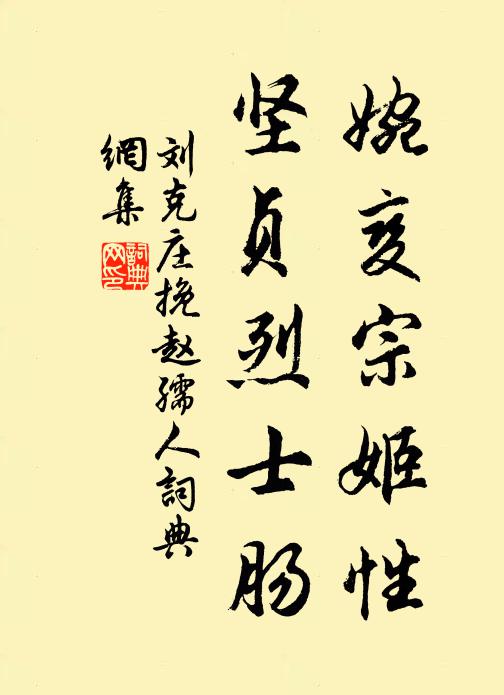 婉娈宗姬性
坚贞烈士肠
刘克庄挽赵孺人詞典
網集
詞典
网印